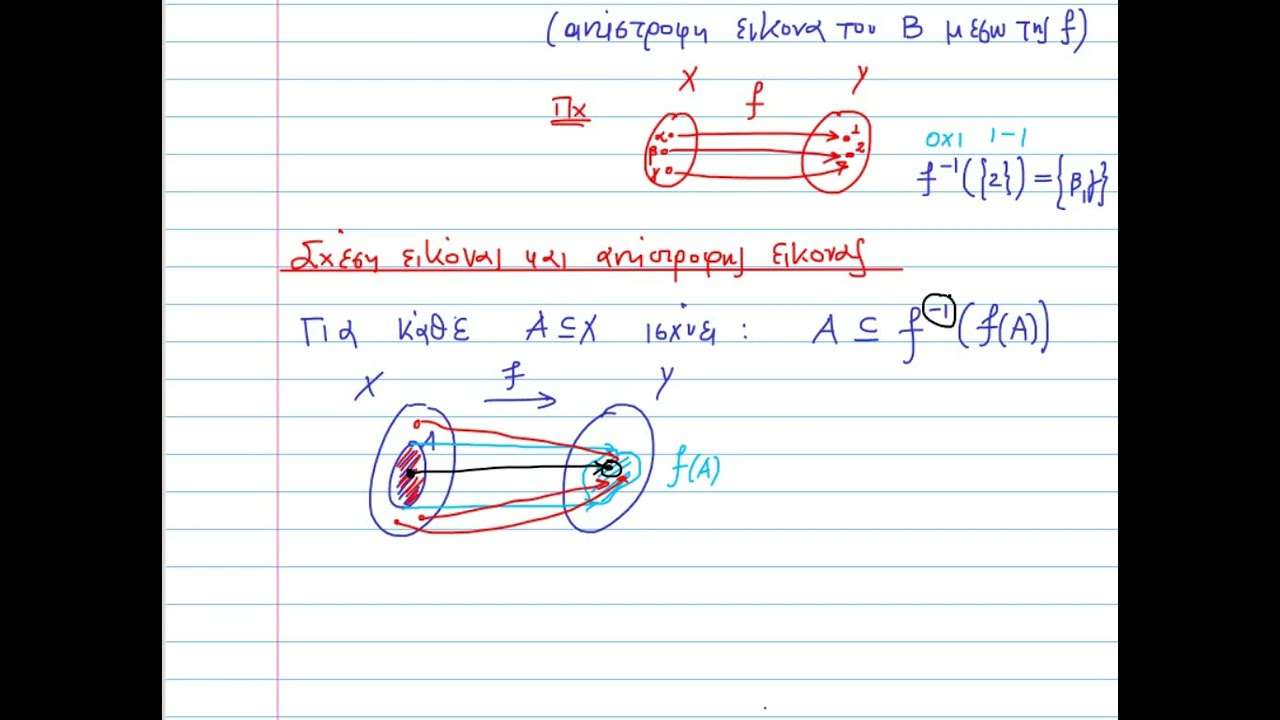 (αντίστροφη εικόνα του Β μέσω της f)
X f Y
Πχ
α 1
β 2
γ
όχι 1-1
f⁻¹({2}) = {β, γ}
Σχέση εικόνας και αντίστροφης εικόνας
Για κάθε A ⊆ X ισχύει : A ⊆ f⁻¹(f(A))
X f Y
A
f(A)